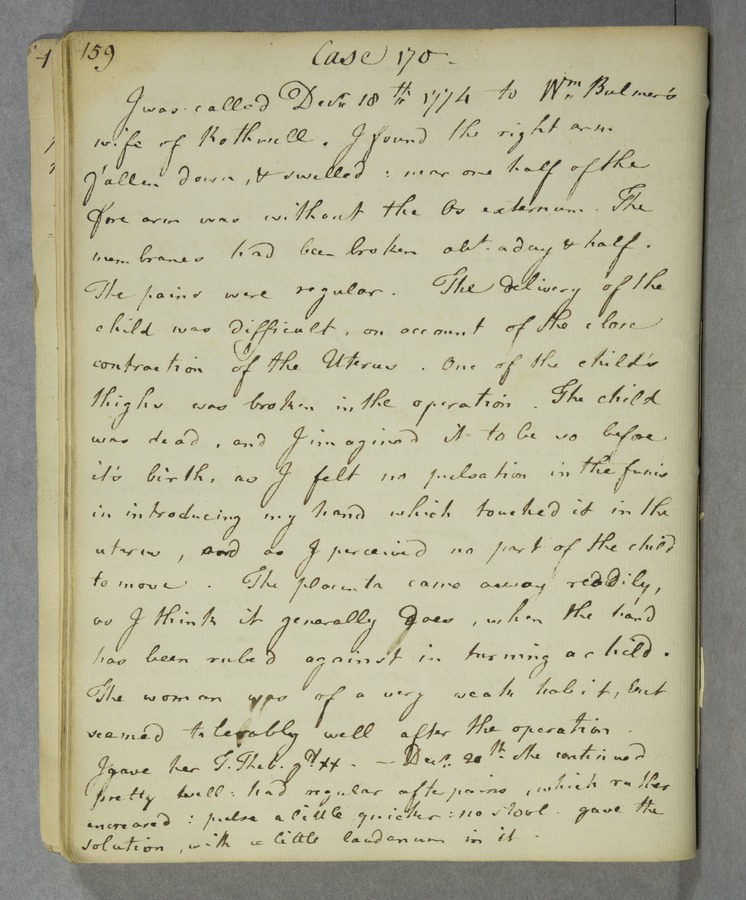 159 Case 170 -
I was called Decbr 18th 1774 to Wm Bulmer's
wife of Rothwell. I found the right arm
fallen down, & swelled: near one half of the
fore arm was without the Os externum. The
membranes had been broken abt. a day & half.
The pains were regular. The delivery of the
child was difficult, on account of the close
contraction of the Uterus. One of the child's
thighs was broken in the operation. The child
was dead, and I imagined it to be so before
it's birth, as I felt no pulsation in the funis
in introducing my hand which touched it in the
uterus, and as I perceived no part of the child
to move. The placenta came away readily,
as I think it generally does, when the hand
has been rubed against in turning a child.
The woman was of a very weak habit, but
seemed tolerably well after the operation.
I gave her T. Theb. gtt xx. - Decr. 20th she continued
pretty well: had regular afterpains, which rather
encreased: pulse a little quicker: no stool. gave the
solution, with a little laudanum in it.